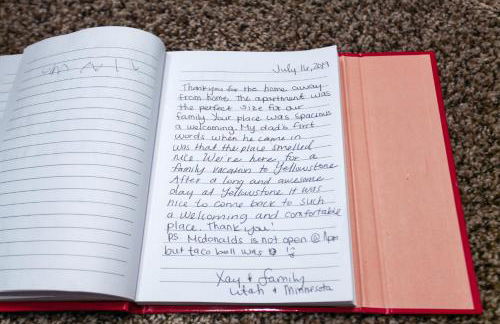 July 16, 2019
Thankyou for the home away
from home. The apartment was
the perfect size for our
family. Your place was spacious
& welcoming. My dad's first
words when he came in
was that the place smelled
nice. We're here for a
family vacation to Yellowstone
After a long and awesome
day at Yellowstone it was
nice to come back to such
a welcoming and comfortable
place. Thank you!
PS. Mcdonalds is not open @
but taco bell was
Xay & family
Utah & Minnesota